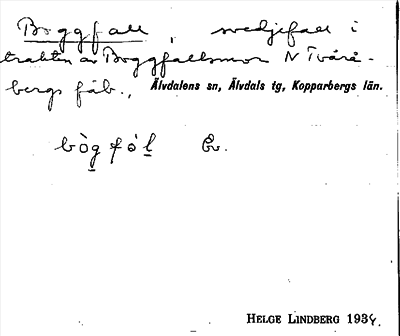 Boggfall, svedjefall i
trakten av Boggfallsmor N Tvärå-
bergs fäb., Älvdalens sn, Älvdals tg, Kopparbergs län.
bògfòl Ev.
HELGE LINDBERG 1934.